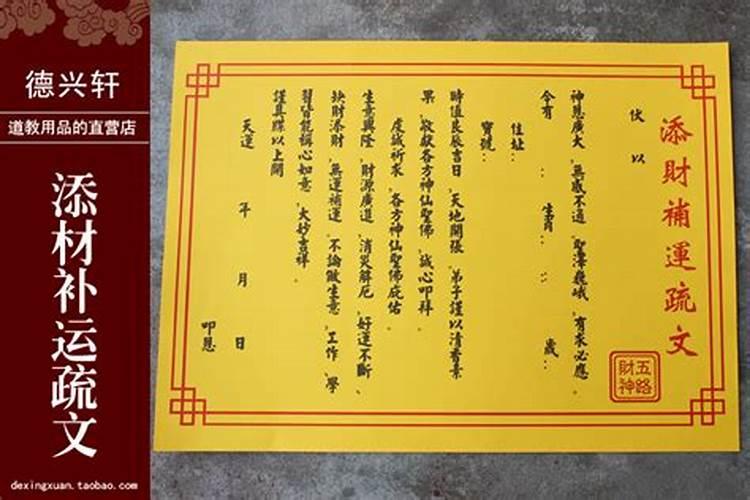 德兴轩
道教用品的直营店
添材补运疏文
dexingxuan.taobao.com
添財補運疏文
五路
財神
伏以
神恩廣大，無感不通，聖澤巍峨，有求必應。
今有：生肖：：歲：
住址：
寶號：
時值良辰吉日，天地開張，弟子謹以清香素
果，敬獻各方神仙聖佛，誠心叩拜。
虔誠祈求，各方神仙聖佛庇佑。
生意興隆，財源廣進，消災解厄，好運不斷、
缺財添財，無運補運，不論做生意，工作，學
習皆能稱心如意，大妙吉祥。
謹具牒以上聞
天運年月日
叩恩